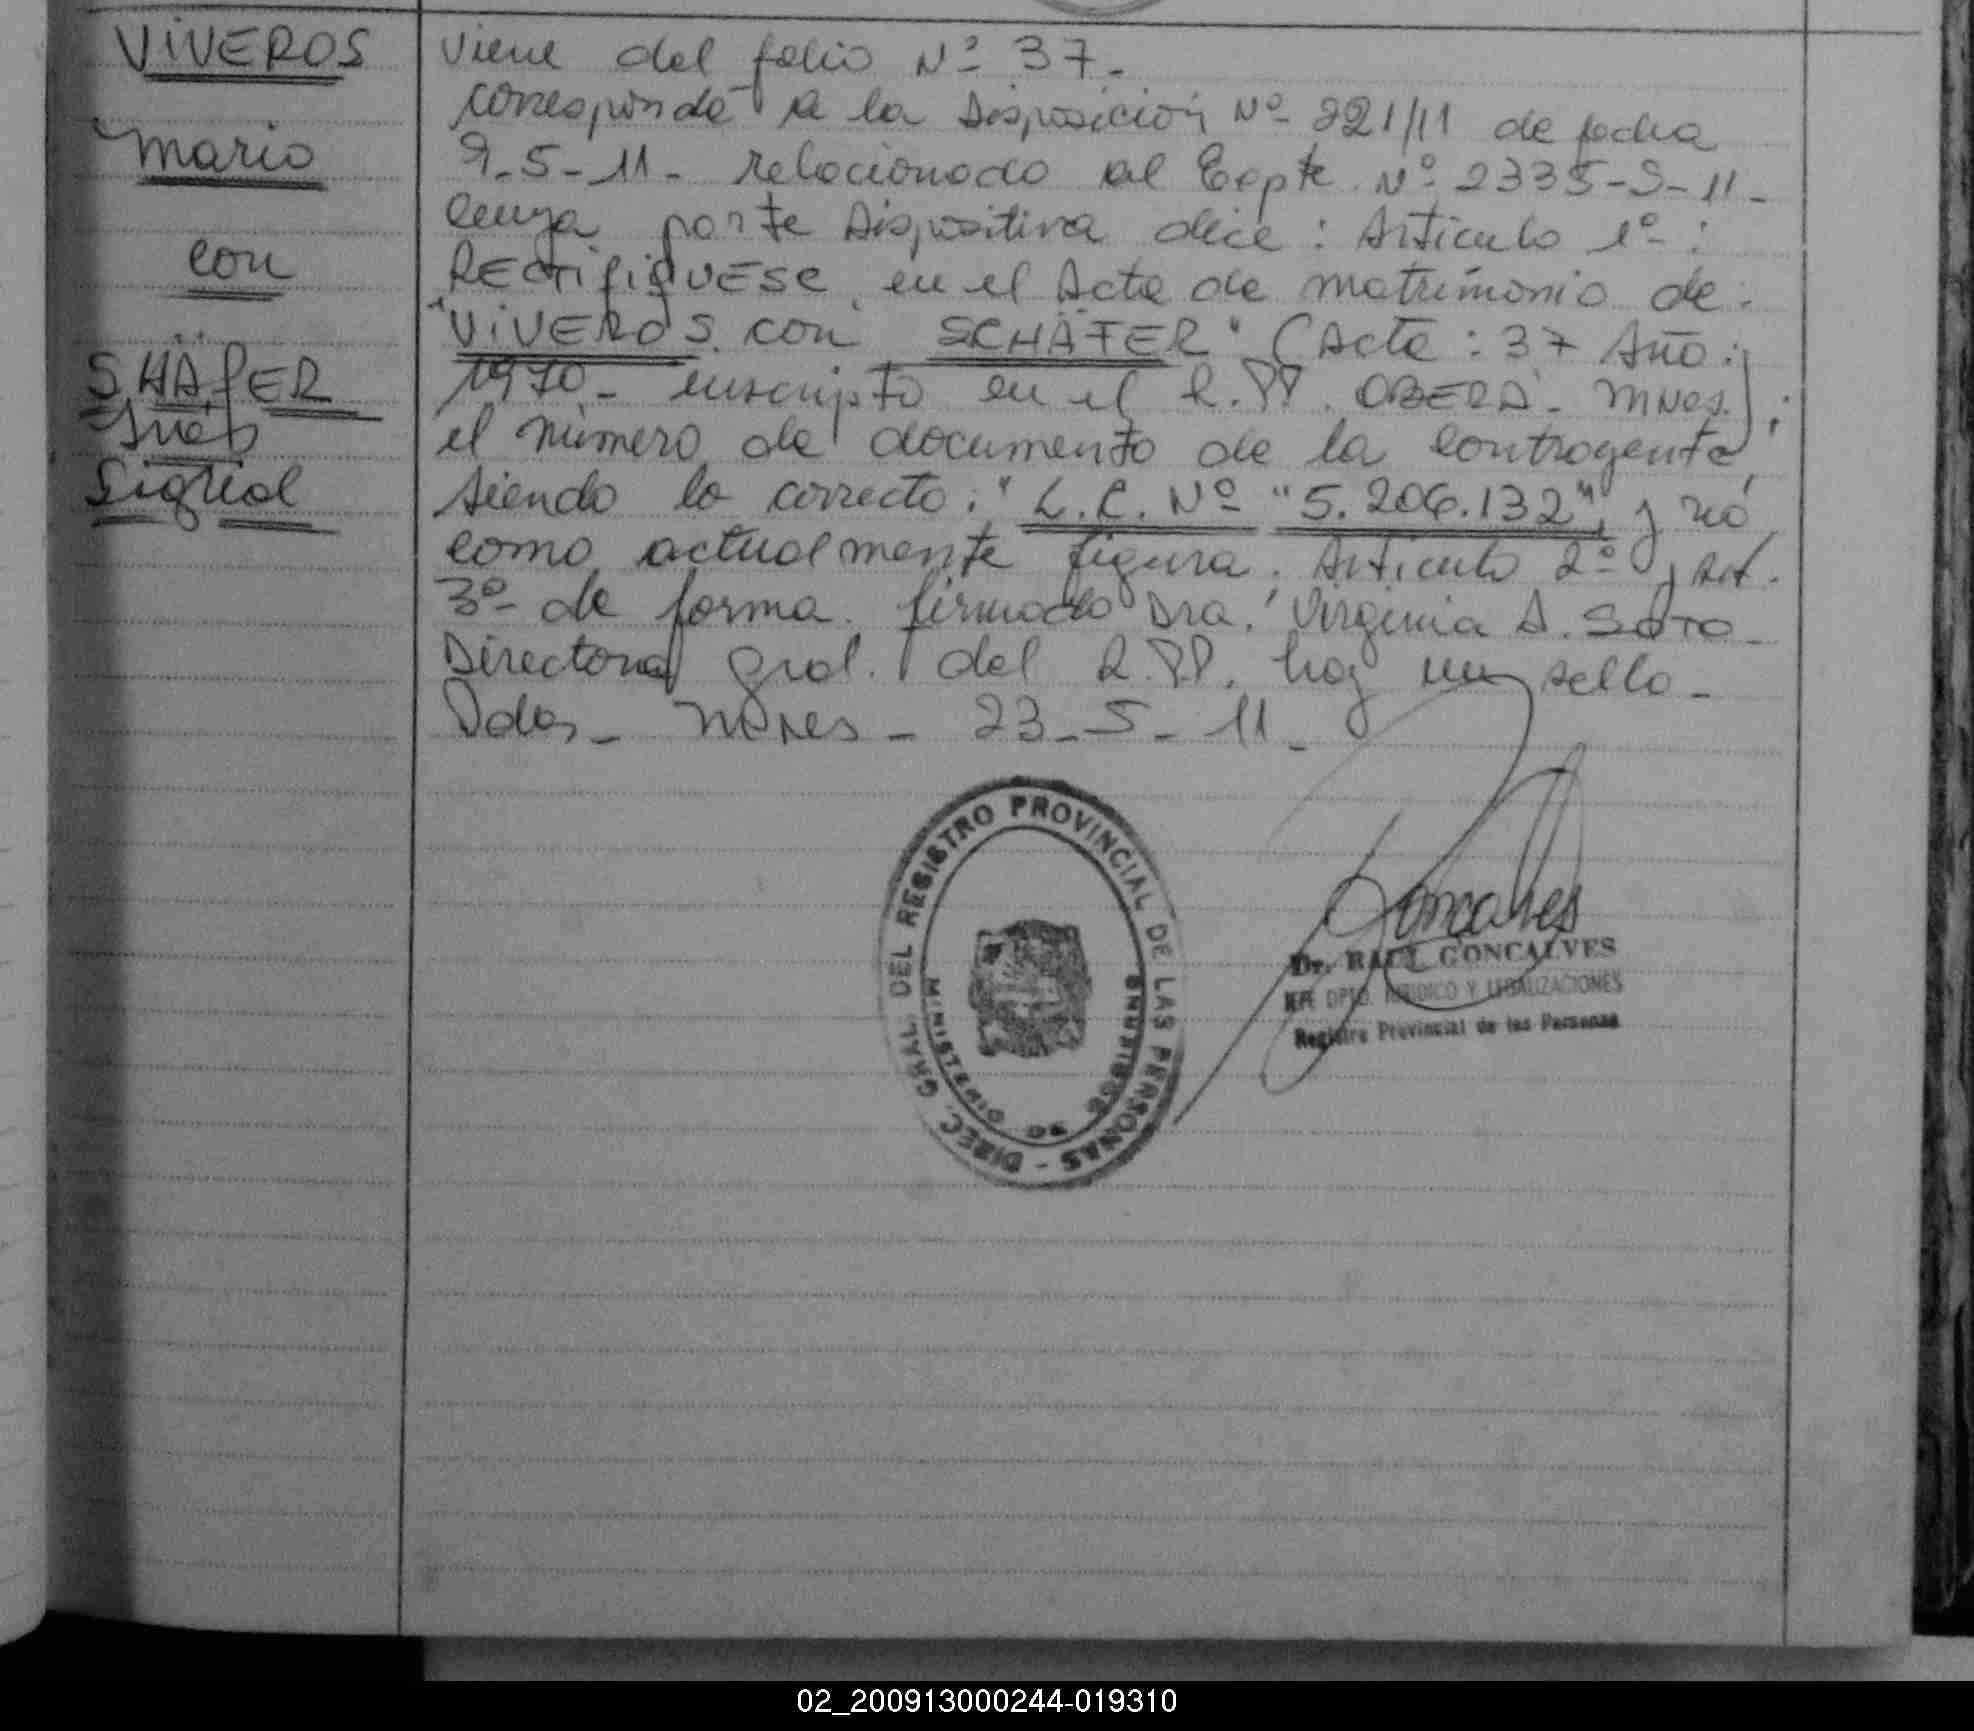 VIVEROS
Mario
con
SHÄFER
Inés
Sigrid
Viene del folio Nº 37.-
corresponde a la Disposición Nº 221/11 de fecha
9-5-11- relacionado al Expte Nº 2335-S-11-
cuya parte Dispositiva dice: Artículo 1º-:
RECTIFIQUESE, en el Acta de matrimonio de:
"VIVEROS con SCHÄFER" (Acta: 37 Año:
1970.- inscripto en el R.PP. OBERÁ- Mnes.);
el número de documento de la contrayente,
siendo lo correcto: "L.C. Nº "5.206.132", y nó
como actualmente figura. Artículo 2º y Art.
3º- de forma. firmado Dra. Virginia A. SOTO-
Directora Gral. del R.PP. hay un sello-
Pdas- Mnes- 23-5-11-
DIREC. GRAL. DEL REGISTRO PROVINCIAL DE LAS PERSONAS -
MINISTERIO DE GOBIERNO
Goncalves
Dr. RAUL GONCALVES
JEFE DPTO. JURIDICO Y LEGALIZACIONES
Registro Provincial de las Personas
02_200913000244-019310